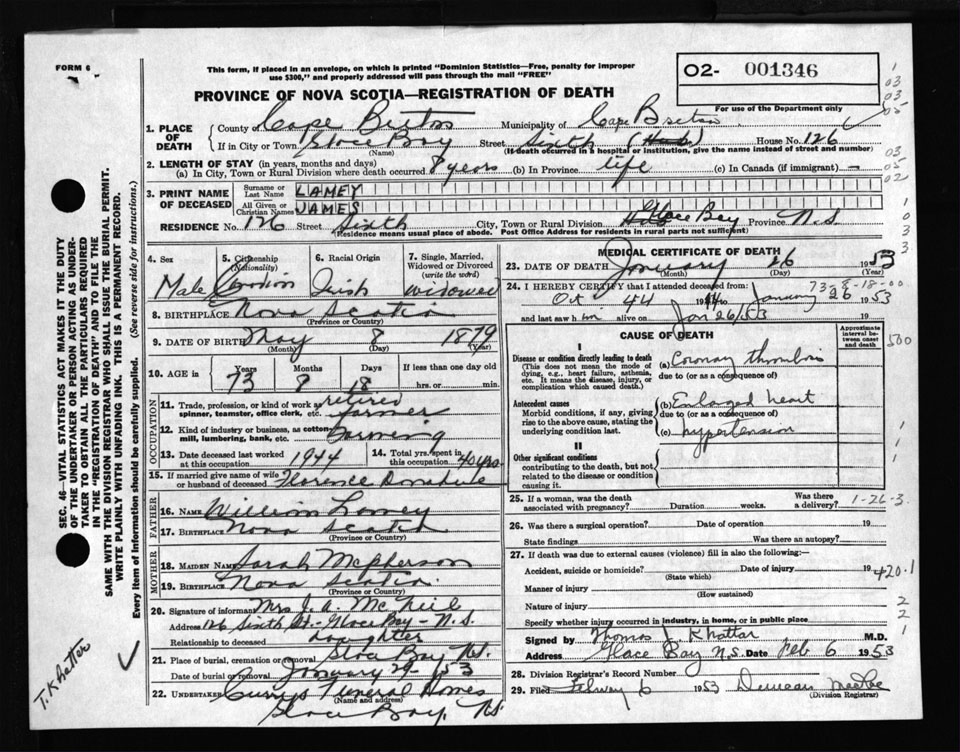 FORM 6
This form, if placed in an envelope, on which is printed "Dominion Statistics—Free, penalty for improper
use $300," and properly addressed will pass through the mail "FREE"
O2- 001346
For use of the Department only
PROVINCE OF NOVA SCOTIA—REGISTRATION OF DEATH
1. PLACE OF DEATH
County of Cape Breton Municipality of Cape Breton
If in City or Town Glace Bay Street Sixth House No. 126
(Name) (If death occurred in a hospital or institution, give the name instead of street and number)
2. LENGTH OF STAY (in years, months and days)
(a) In City, Town or Rural Division where death occurred 8 years (b) In Province life (c) In Canada (if immigrant) —
3. PRINT NAME OF DECEASED
Surname or Last Name LAMEY
All Given or Christian Names JAMES
RESIDENCE No. 126 Street Sixth City, Town or Rural Division Glace Bay Province N.S
(Residence means usual place of abode. Post Office Address for residents in rural parts not sufficient)
4. Sex
5. Citizenship (Nationality)
6. Racial Origin
7. Single, Married, Widowed or Divorced (write the word)
Male Canadian Irish widowed
8. BIRTHPLACE Nova Scotia
(Province or Country)
9. DATE OF BIRTH May 8 1879
(Month) (Day) (Year)
10. AGE
Years Months Days If less than one day old
73 8 18 hrs. or min.
OCCUPATION
11. Trade, profession, or kind of work as spinner, teamster, office clerk, etc. retired farmer
12. Kind of industry or business, as cotton mill, lumbering, bank, etc. Farming
13. Date deceased last worked at this occupation 1944
14. Total yrs. spent in this occupation 40 yrs.
15. If married give name of wife or husband of deceased Florence Donahue
FATHER
16. NAME William Lamey
17. BIRTHPLACE Nova Scotia
(Province or Country)
MOTHER
18. MAIDEN NAME Sarah McPherson
19. BIRTHPLACE Nova Scotia
(Province or Country)
20. Signature of informant Mrs J. A. McNeil
Address 126 Sixth St. - Glace Bay - N.S.
Relationship to deceased daughter
21. Place of burial, cremation or removal Glace Bay NS.
Date of burial or removal January 29 - 53
22. UNDERTAKER Curry's Funeral Homes
Glace Bay, NS.
MEDICAL CERTIFICATE OF DEATH
23. DATE OF DEATH January 26 1953
(Month) (Day) (Year)
73-8-18-00
24. I HEREBY CERTIFY that I attended deceased from:
Oct 44 19 44 to January 26 1953
and last saw him alive on Jan 26/53 19
CAUSE OF DEATH
Approximate interval between onset and death
I
Disease or condition directly leading to death (a) Coronary thrombosis
(This does not mean the mode of dying, e.g., heart failure, asthenia, etc. It means the disease, injury, or complication which caused death.)
due to (or as a consequence of)
Antecedent causes (b) Enlarged heart
Morbid conditions, if any, giving rise to the above cause, stating the underlying condition last.
due to (or as a consequence of)
(c) hypertension
II
Other significant conditions
contributing to the death, but not related to the disease or condition causing it.
500
25. If a woman, was the death associated with pregnancy? Duration weeks. Was there a delivery?
1-26-3
26. Was there a surgical operation? Date of operation 19
State findings Was there an autopsy?
27. If death was due to external causes (violence) fill in also the following:—
Accident, suicide or homicide? Date of injury 19
(State which)
420.1
Manner of injury
(How sustained)
Nature of injury
Specify whether injury occurred in industry, in home, or in public place
Signed by Thomas J. Khattar M.D.
Address Glace Bay N.S. Date Feb 6 1953
28. Division Registrar's Record Number
29. Filed February 6 1953 Duncan MacRae
(Division Registrar)
SEC. 46—VITAL STATISTICS ACT MAKES IT THE DUTY
OF THE UNDERTAKER OR PERSON ACTING AS UNDER-
TAKER TO OBTAIN ALL THE PARTICULARS REQUIRED
IN THE "REGISTRATION OF DEATH" AND TO FILE THE
SAME WITH THE DIVISION REGISTRAR WHO SHALL ISSUE THE BURIAL PERMIT.
WRITE PLAINLY WITH UNFADING INK. THIS IS A PERMANENT RECORD.
Every item of information should be carefully supplied. (See reverse side for instructions.)
T. Khattar